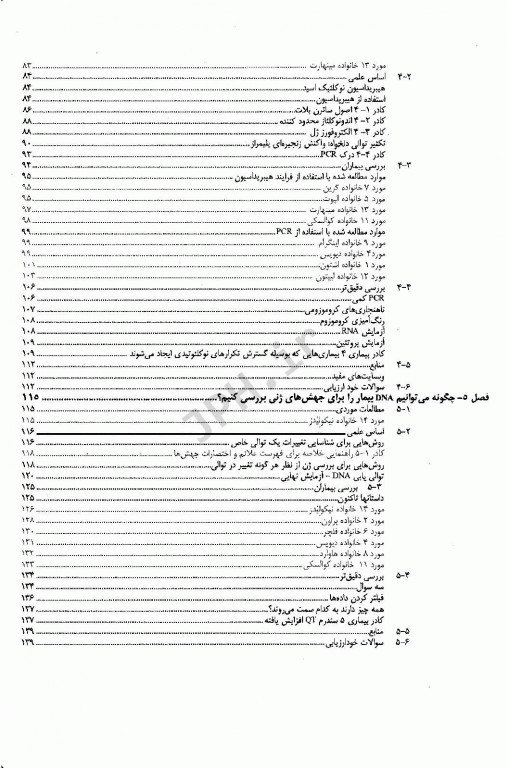 مورد ۱۳ خانواده مینهارت ۸۳
۴-۲ اساس علمی ۸۴
هیبریداسیون نوکلئیک اسید ۸۴
استفاده از هیبریداسیون ۸۴
کادر ۱-۴ اصول ساترن بلات ۸۶
کادر ۲-۴ اندونوکلئاز محدود کننده ۸۸
کادر ۳-۴ الکتروفورز ژل ۸۸
تکثیر توالی دلخواه: واکنش زنجیره‌ای پلیمراز ۹۰
کادر ۴-۴ درک PCR ۹۳
۴-۳ بررسی بیماران ۹۴
موارد مطالعه شده با استفاده از فرایند هیبریداسیون ۹۵
مورد ۷ خانواده گرین ۹۵
مورد ۵ خانواده الیوت ۹۵
مورد ۱۳ خانواده مینهارت ۹۷
مورد ۱۱ خانواده کوالسکی ۹۸
موارد مطالعه شده با استفاده از PCR ۹۹
مورد ۹ خانواده اینگرام ۹۹
مورد ۴ خانواده دیویس ۹۹
مورد ۱ خانواده اشتون ۱۰۱
مورد ۱۲ خانواده لیپتون ۱۰۳
۴-۴ بررسی دقیق‌تر ۱۰۶
PCR کمی ۱۰۶
ناهنجاری‌های کروموزومی ۱۰۷
رنگ‌آمیزی کروموزوم ۱۰۸
آزمایش RNA ۱۰۸
آزمایش پروتئین ۱۰۹
کادر بیماری ۴ بیماری‌هایی که بوسیله گسترش تکرارهای نوکلئوتیدی ایجاد می‌شوند ۱۰۹
۴-۵ منابع ۱۱۲
وبسایت‌های مفید ۱۱۲
۴-۶ سوالات خود ارزیابی ۱۱۲
فصل ۵- چگونه می‌توانیم DNA بیمار را برای جهش‌های ژنی بررسی کنیم؟ ۱۱۵
۵-۱ مطالعات موردی ۱۱۵
مورد ۱۴ خانواده نیکولیدز ۱۱۵
۵-۲ اساس علمی ۱۱۶
روش‌هایی برای شناسایی تغییرات یک توالی خاص ۱۱۶
کادر ۱-۵ راهنمایی خلاصه برای فهرست علائم و اختصارات جهش‌ها ۱۱۸
روش‌هایی برای بررسی ژن از نظر هر گونه تغییر در توالی ۱۱۸
توالی یابی DNA - آزمایش نهایی ۱۲۰
۵-۳ بررسی بیماران ۱۲۵
داستانها تاکنون ۱۲۵
مورد ۱۴ خانواده نیکولیدز ۱۲۶
مورد ۲ خانواده براون ۱۲۸
مورد ۶ خانواده فلچر ۱۳۰
مورد ۴ خانواده دیویس ۱۳۱
مورد ۸ خانواده هاوارد ۱۳۲
مورد ۱۱ خانواده کوالسکی ۱۳۳
۵-۴ بررسی دقیق‌تر ۱۳۴
سه سوال ۱۳۴
فیلتر کردن داده‌ها ۱۳۶
همه چیز دارند به کدام سمت می‌روند؟ ۱۳۷
کادر بیماری ۵ سندرم QT افزایش یافته ۱۳۷
۵-۵ منابع ۱۳۹
۵-۶ سوالات خودارزیابی ۱۳۹
JPH.ir